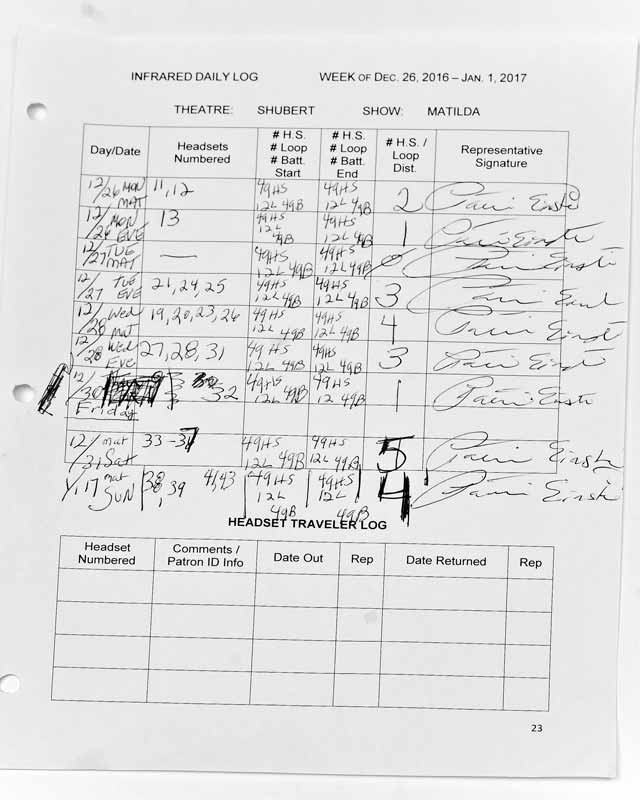 INFRARED DAILY LOG WEEK OF DEC. 26, 2016 – JAN. 1, 2017
THEATRE: SHUBERT SHOW: MATILDA
Day/Date Headsets Numbered # H.S. # Loop # Batt. Start # H.S. # Loop # Batt. End # H.S. / Loop Dist. Representative Signature
12/26 MON MAT 11,12 49HS 12L 49B 49HS 12L 49B 2
12/26 MON EVE 13 49HS 12L 49B 49HS 12L 49B 1
12/27 TUE MAT — 49HS 12L 49B 49HS 12L 49B 0
12/27 TUE EVE 21,24,25 49HS 12L 49B 49HS 12L 49B 3
12/28 Wed mat 19,20,23,26 49HS 12L 49B 49HS 12L 49B 4
12/28 Wed Eve 27,28,31 49HS 12L 49B 49HS 12L 49B 3
12/30 Friday 32 49HS 12L 49B 49HS 12 49B 1
12/31 mat Sat 33-37 49HS 12L 49B 49HS 12L 49B 5
1/1,17 mat SUN 38,39 41,43 49HS 12L 49B 49HS 12L 49B 4
HEADSET TRAVELER LOG
Headset Numbered Comments / Patron ID Info Date Out Rep Date Returned Rep
23